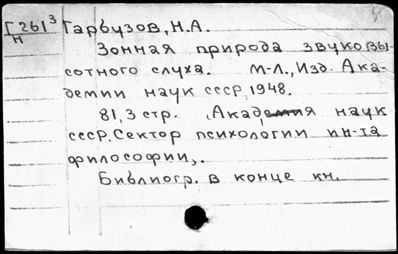 Г 261³ Гарбузов, Н.А.
Н
Зонная природа звуковы-
сотного слуха. М-Л., Изд. Ака-
демии наук ссср, 1948.
81,3 стр. (Академия наук
ссср. Сектор психологии ин-та
философии,.
Библиогр. в конце кн.